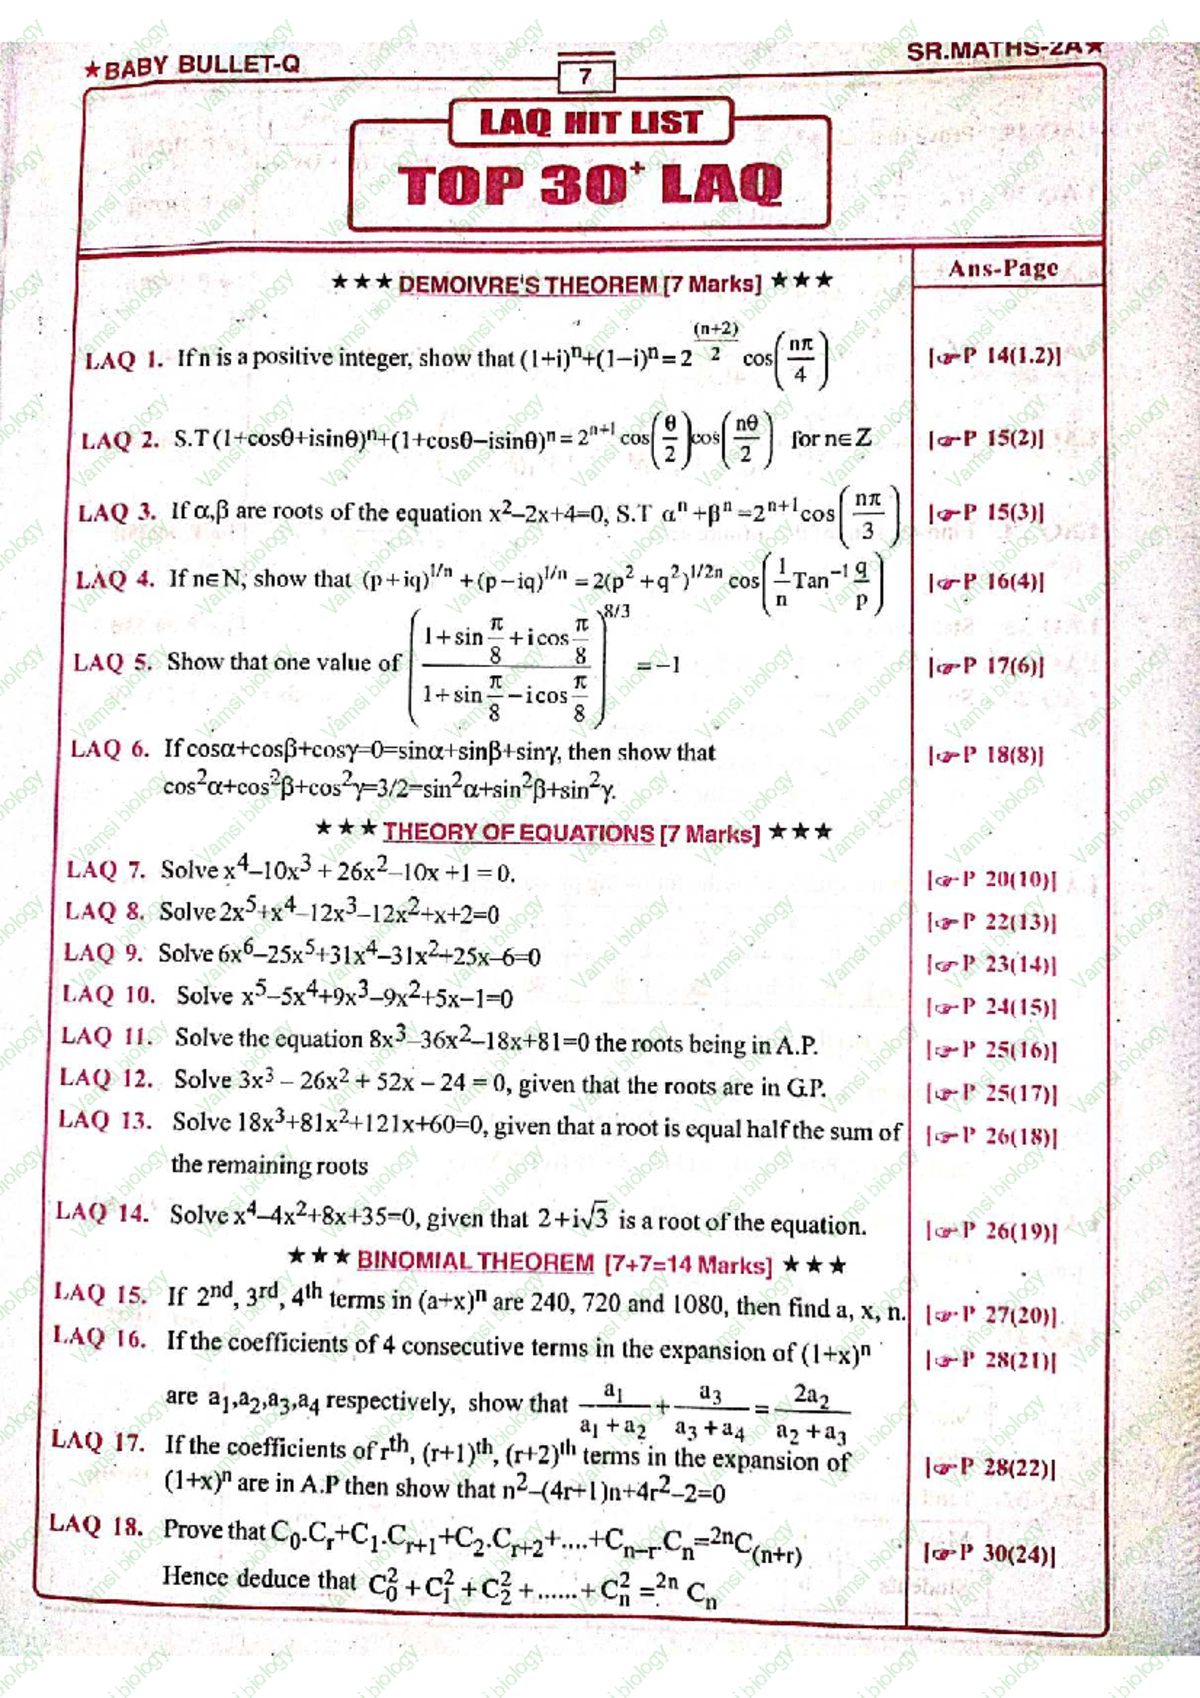 ★BABY BULLET-Q
7
SR.MATHS-2A★
LAQ HIT LIST
TOP 30⁺ LAQ
Ans-Page
★★★ DEMOIVRE'S THEOREM [7 Marks] ★★★
LAQ 1. If n is a positive integer, show that (1+i)ⁿ+(1−i)ⁿ = 2^((n+2)/2) cos(nπ/4) [☞P 14(1.2)]
LAQ 2. S.T (1+cosθ+isinθ)ⁿ+(1+cosθ−isinθ)ⁿ = 2ⁿ⁺¹ cos(θ/2)cos(nθ/2) for n∈Z [☞P 15(2)]
LAQ 3. If α,β are roots of the equation x²–2x+4=0, S.T αⁿ+βⁿ=2ⁿ⁺¹cos(nπ/3) [☞P 15(3)]
LAQ 4. If n∈N, show that (p+iq)^(1/n) +(p−iq)^(1/n) = 2(p²+q²)^(1/2n) cos(1/n Tan⁻¹ q/p) [☞P 16(4)]
LAQ 5. Show that one value of ((1+sin π/8 + i cos π/8)/(1+sin π/8 − i cos π/8))^(8/3) = −1 [☞P 17(6)]
LAQ 6. If cosα+cosβ+cosγ=0=sinα+sinβ+sinγ, then show that [☞P 18(8)]
cos²α+cos²β+cos²γ=3/2=sin²α+sin²β+sin²γ.
★★★ THEORY OF EQUATIONS [7 Marks] ★★★
LAQ 7. Solve x⁴–10x³ + 26x²–10x +1 = 0. [☞P 20(10)]
LAQ 8. Solve 2x⁵+x⁴–12x³–12x²+x+2=0 [☞P 22(13)]
LAQ 9. Solve 6x⁶–25x⁵+31x⁴–31x²+25x–6=0 [☞P 23(14)]
LAQ 10. Solve x⁵–5x⁴+9x³–9x²+5x–1=0 [☞P 24(15)]
LAQ 11. Solve the equation 8x³–36x²–18x+81=0 the roots being in A.P. [☞P 25(16)]
LAQ 12. Solve 3x³ – 26x² + 52x – 24 = 0, given that the roots are in G.P. [☞P 25(17)]
LAQ 13. Solve 18x³+81x²+121x+60=0, given that a root is equal half the sum of [☞P 26(18)]
the remaining roots
LAQ 14. Solve x⁴–4x²+8x+35=0, given that 2+i√3 is a root of the equation. [☞P 26(19)]
★★★ BINOMIAL THEOREM [7+7=14 Marks] ★★★
LAQ 15. If 2nd, 3rd, 4th terms in (a+x)ⁿ are 240, 720 and 1080, then find a, x, n. [☞P 27(20)]
LAQ 16. If the coefficients of 4 consecutive terms in the expansion of (1+x)ⁿ [☞P 28(21)]
are a₁,a₂,a₃,a₄ respectively, show that a₁/(a₁+a₂) + a₃/(a₃+a₄) = 2a₂/(a₂+a₃)
LAQ 17. If the coefficients of rth, (r+1)th, (r+2)th terms in the expansion of
(1+x)ⁿ are in A.P then show that n²–(4r+1)n+4r²–2=0 [☞P 28(22)]
LAQ 18. Prove that C₀.Cᵣ+C₁.Cᵣ₊₁+C₂.Cᵣ₊₂+....+Cₙ₋ᵣ.Cₙ=²ⁿC₍ₙ₊ᵣ₎ [☞P 30(24)]
Hence deduce that C₀²+C₁²+C₂²+......+Cₙ²=²ⁿCₙ
Vamsi biology